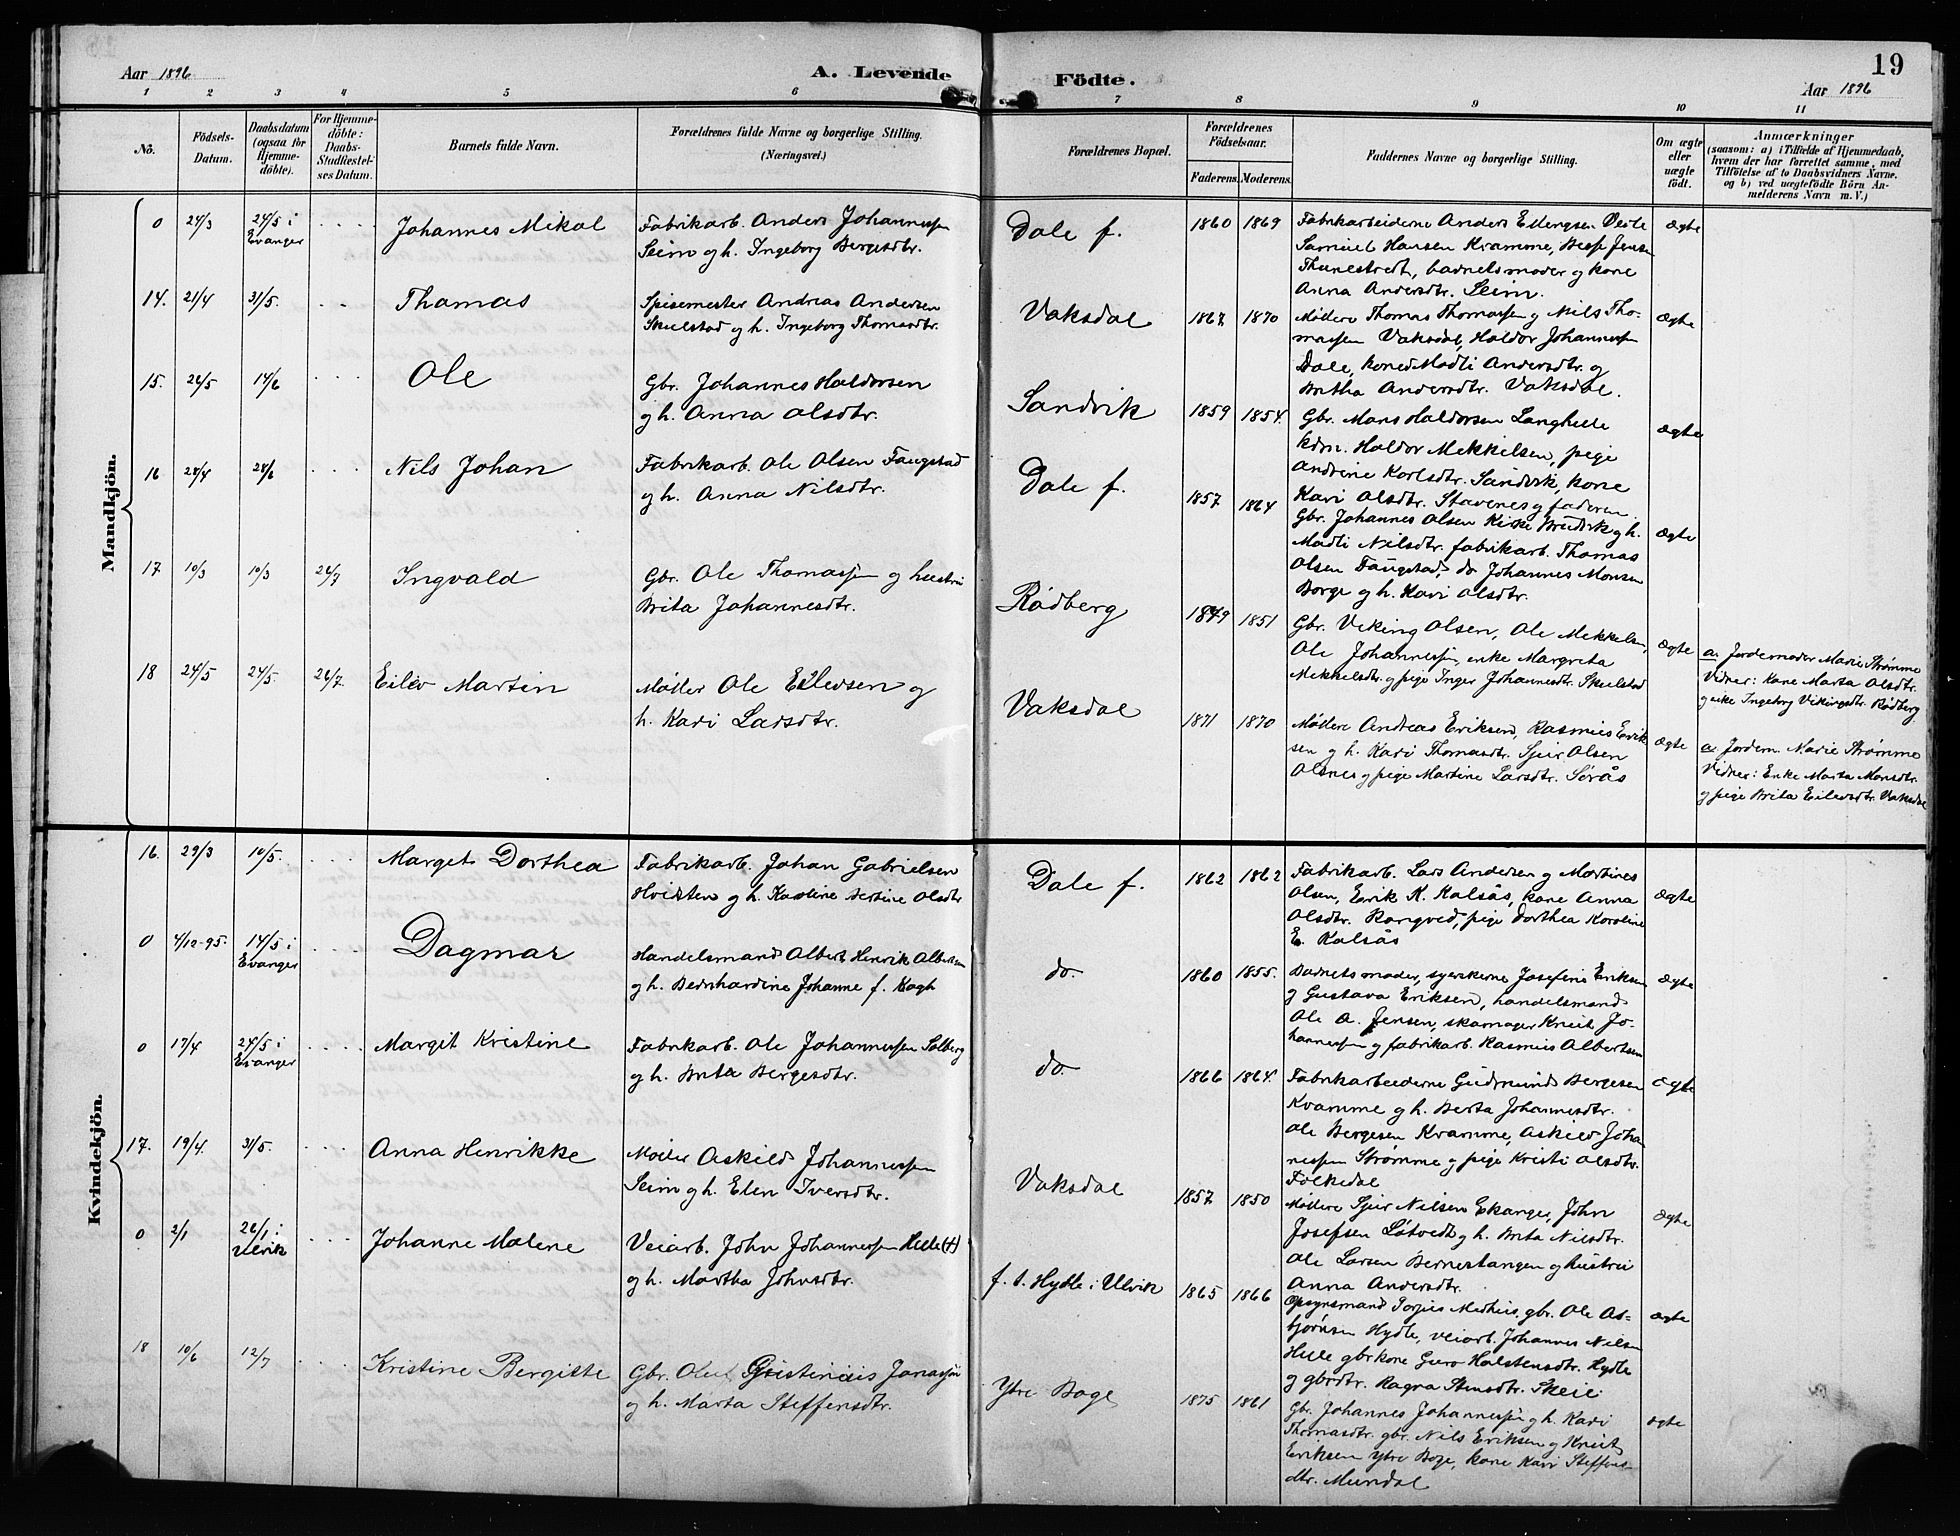 Aar 1896
A. Levende
Födte.
19
Aar 1896
1 2 3 4 5 6 7 8 9 10 11
No.
Födsels-Datum.
Daabsdatum (ogsaa for Hjemme-döbte).
For Hjemme-döbte: Daabs-Stadfæstel-ses Datum.
Barnets fulde Navn.
Forældrenes fulde Navne og borgerlige Stilling.
(Næringsvei.)
Forældrenes Bopæl.
Forældrenes Födselsaar.
Faderens. Moderens.
Faddernes Navne og borgerlige Stilling.
Om ægte eller uægte födt.
Anmærkninger
(saasom: a) i Tilfælde af Hjemmedaab, hvem der har forrettet samme, med Tilföielse af to Daabsvidners Navne. og b) ved uægtefödte Börn An-melderens Navn m. V.)
Mandkjön.
0 24/3 24/5 i Evanger Johannes Mikal
Fabrikarb. Anders Johannessen
Seim og h. Ingeborg Bergesdtr.
Dale f. 1860 1869
Fabrikarbeiderne Anders Ellengsen Veste
Samuel Hansen Kramme, Berge Jensen
barnets moder og kone
Anna Andersdtr. Seim.
ægte
14. 21/4 31/5. Thomas
Spisemester Andreas Andersen
Skulstad og h. Ingeborg Thomasdtr.
Vaksdal 1867 1870
Møllere Thomas Thomassen og Nils Tho-
massen Vaksdal, Haldor Johannessen
Dale, kone Madli Andersdtr. og
Britha Andersdtr. Vaksdal.
ægte
15. 26/5 14/6 Ole
Gbr. Johannes Haldorsen
og h. Anna Olsdtr.
Sandvik 1859 1854
Gbr. Mons Haldorsen Langhelle
kdm. Haldor Mekkelsen, pige
Andrine Karlsdtr. Sandvik, kone
Kari Olsdtr. Stavenes og faderen.
ægte
16 28/4 28/6 Nils Johan
Fabrikarb. Ole Olsen Faugstad
og h. Anna Nilsdtr.
Dale f. 1857 1864
Gbr. Johannes Olsen og h.
Madli Nilsdtr. fabrikarb. Thomas
Olsen Faugstad, do Johannes Monsen
Borge og h. Kari Olsdtr.
ægte
17 10/3 10/3 26/7 Ingvald
Gbr. Ole Thomassen og hustru
Brita Johannesdtr.
Rødberg 1849 1851
Gbr. Viking Olsen, Ole Mekkelsen,
Ole Johannessen, enke Margreta
Mekkelsdtr. og pige Inger Johannesdtr. Skulstad
ægte
a. Jordemoder Marie Strømme
Vidner: kone Marta Olsdtr.
og enke Ingeborg Vikingsdtr. Rødberg
18 24/5 24/5. 26/7. Eilev Martin
Møller Ole Eilevsen og
h. Kari Larsdtr.
Vaksdal 1871 1870
Møllere Andreas Eriksen, Rasmus Erik-
sen og h. Kari Thomasdtr. Sjur Olsen
Olsnes og pige Martine Larsdtr. Sørås
ægte
a. Jordem. Marie Strømme
Vidner: Enke Marta Monsdtr.
og pige Brita Eilevsdtr. Vaksdal
Kvindekjön.
16. 29/3 10/5. Marget Dorthea
Fabrikarb. Johan Gabrielsen
Hvidsten og h. Karoline Olsdtr
Dale f. 1862 1862
Fabrikarb. Lars Andersen og Martines
Olsen, Erik K. Kalsås, kone Anna
Olsdtr. Rongved, pige Dorthea Karoline
E. Kalsås
ægte
0 4/12-95. 14/5 i Evanger Dagmar
Handelsmand Albert Henrik Albertsen
og h. Bernhardine Johanne f. Kogh
do 1860 1855.
Barnets moder, syerskerne Josefine Eriksen
og Gustava Eriksen, handelsmand
Ole A. Jensen, skomager Knut Jo-
hannessen og fabrikarb. Rasmus Albertsen
ægte
0 17/4 24/5 i Evanger Margit Kristine
Fabrikarb. Ole Johannessen Solberg
og h. Brita Bergesdtr.
do. 1866 1864.
Fabrikarbeiderne Gudmund Bergesen
Kvamme og h. Berta Johannesdtr.
Ole Bergesen Kvamme, Askild Johan-
nessen Strømme og pige Kristi Olsdtr.
Folkedal
ægte
17. 19/4. 31/5. Anna Henrikke
Møller Askild Johannessen
Seim og h. Elen Iversdtr.
Vaksdal 1857 1850
Møllere Sjur Nilsen Ekanger, John
Josefsen Løtvedt og h. Brita Nilsdtr.
Ole Larsen Bernestangen og hustru
Anna Andersdtr.
ægte
0 2/1 26/1 i Ulvik Johanne Malene
Veiarb. John Johannessen Helle (†)
og h. Martha Johnsdtr.
f. t. Hydle i Ulvik 1865 1866
Opsynsmand Torjus Medhus, gbr. Ole As-
bjørnsen Hydle, veiarb. Johannes Nilsen
Helle gbrkone Guro Halstensdtr. Hydle
og gbrdtr. Ragna Stensdtr. Skeie
ægte
18 10/6 12/7 Kristine Bergitte
Gbr. Oluf Jonassen
og h. Marta Steffensdtr.
Ytre Boge 1875 1861
Gbr. Johannes Johannessen og h. Kari
Thomasdtr. gbr. Nils Eriksen og Knut
Eriksen Ytre Boge, kone Kari Steffens-
dtr. Mundal
ægte